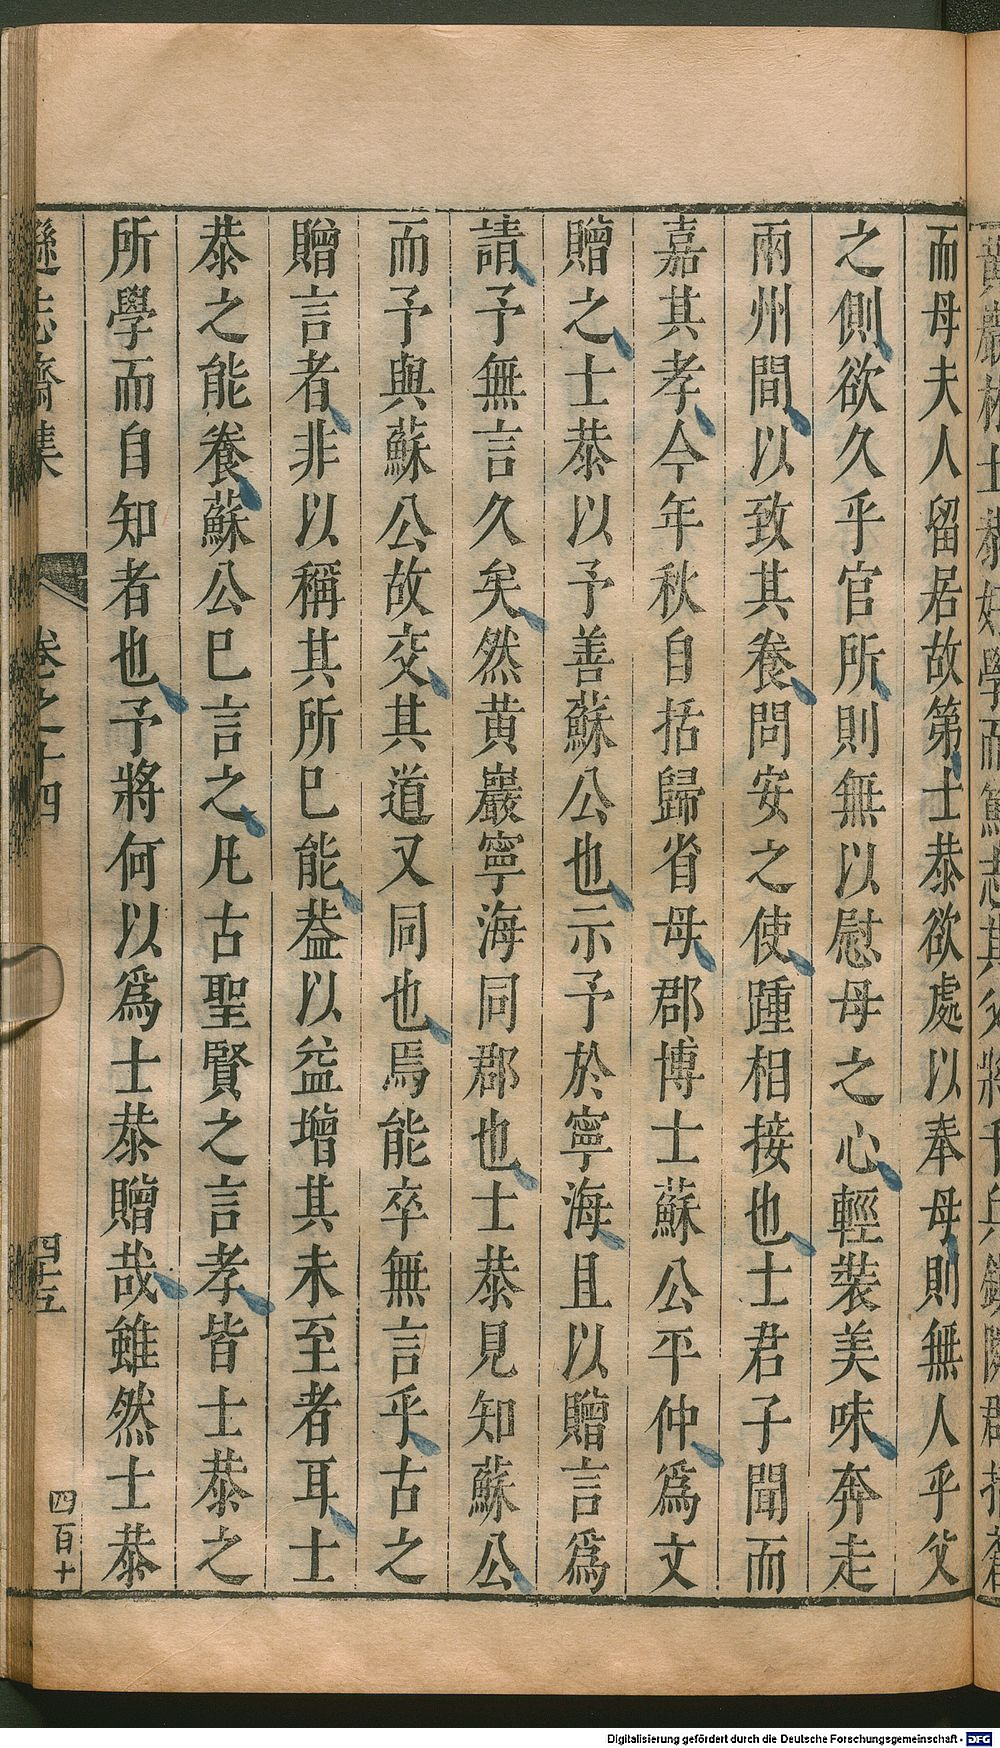 而母夫人留居故第士恭欲處以奉母則無人乎父
之側欲久乎官所則無以慰母之心輕裝美味奔走
兩州間以致其養問安之使踵相接也士君子聞而
嘉其孝今年秋自括歸省母郡博士蘇公平仲爲文
贈之士恭以予善蘇公也示予於寧海且以贈言爲
請予無言久矣然黄巖寧海同郡也士恭見知蘇公
而予與蘇公故交其道又同也焉能卒無言乎古之
贈言者非以稱其所已能葢以益增其未至者耳士
恭之能養蘇公已言之凡古聖賢之言孝皆士恭之
所學而自知者也予將何以爲士恭贈哉雖然士恭
遜志齋集
卷之十四
四十五
四百十
Digitalisierung gefördert durch die Deutsche Forschungsgemeinschaft - DFG